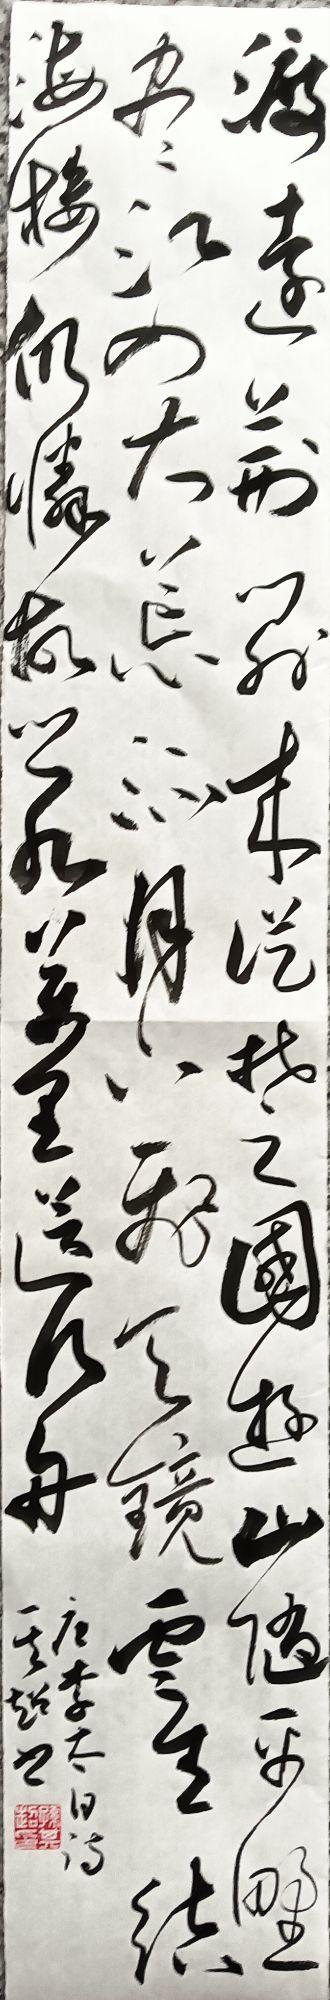 渡遠荊門外来從楚國遊山隨平野
盡江入大荒流月下飛天鏡雲生結
海樓仍憐故鄉水萬里送行舟
唐李太白詩
超书